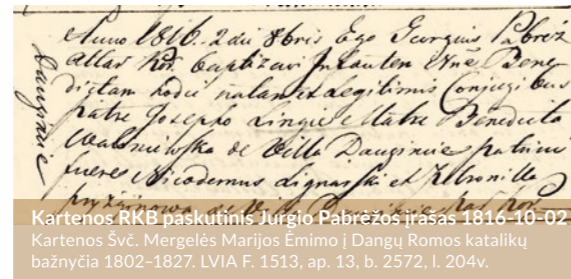 Anno 1816. 2 die 8bris Ego Georgius Pabréz
Altar Kož. baptizavi Infantem Nne Bene
dictam hodie natam ex Legitimis Conjugibus
Patre Josepho Lingie Matre Benedicta
de Villa Dauginie Patrini
fueres Nicodemus et Petronilla
Kartenos RKB paskutinis Jurgio Pabrėžos įrašas 1816-10-02
Kartenos Švč. Mergelės Marijos Ėmimo į Dangų Romos katalikų
bažnyčia 1802–1827. LVIA F. 1513, ap. 13, b. 2572, l. 204v.